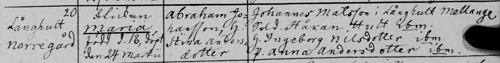 20
Långhult
norregård
Flickan
Maria
född d. 18, döpt
den 24 Martii
Abraham Jo-
hansson, h.
Stina anders-
dotter
Johannes Matsson i Långhult Mellange
Sold. Håkan Hult ibm.
h. Ingeborg Nilsdotter ibm
p. Anna andersdotter ibm.